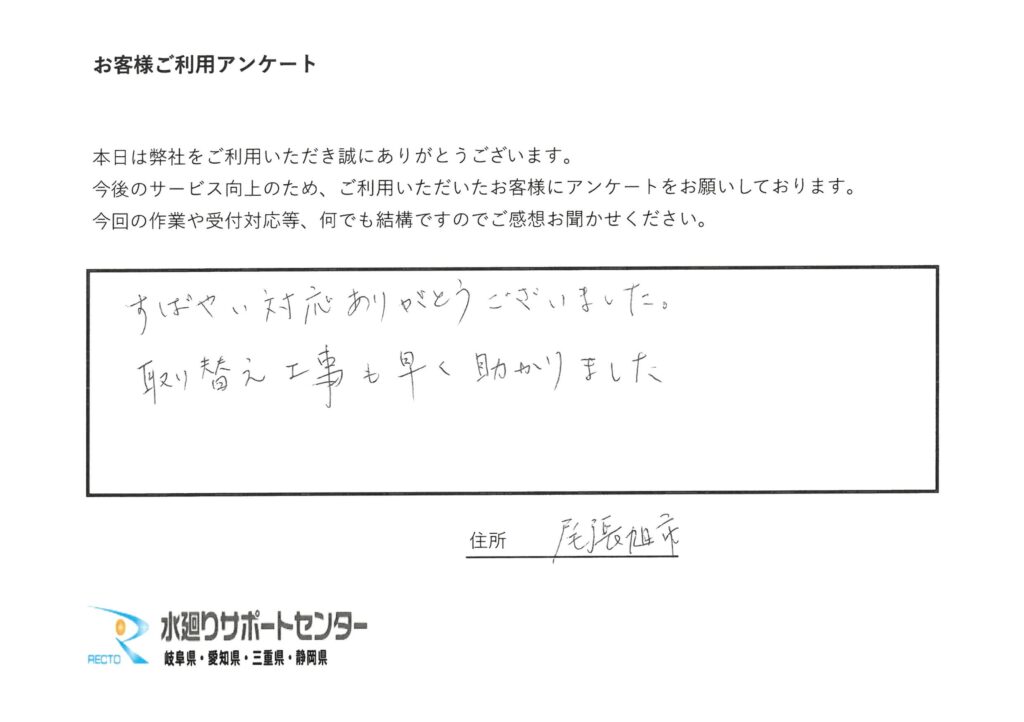 お客様ご利用アンケート
本日は弊社をご利用いただき誠にありがとうございます。
今後のサービス向上のため、ご利用いただいたお客様にアンケートをお願いしております。
今回の作業や受付対応等、何でも結構ですのでご感想お聞かせください。
すばやい対応ありがとうございました。
取り替え工事も早く助かりました
住所 尾張旭市
RECTO 水廻りサポートセンター
岐阜県・愛知県・三重県・静岡県